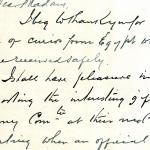 Dear Madam,
I beg to thank you for
of curios from Egypt w
re received safely.
I shall have pleasure in
orting the interesting gif
my Comtee at their next
eting when an official